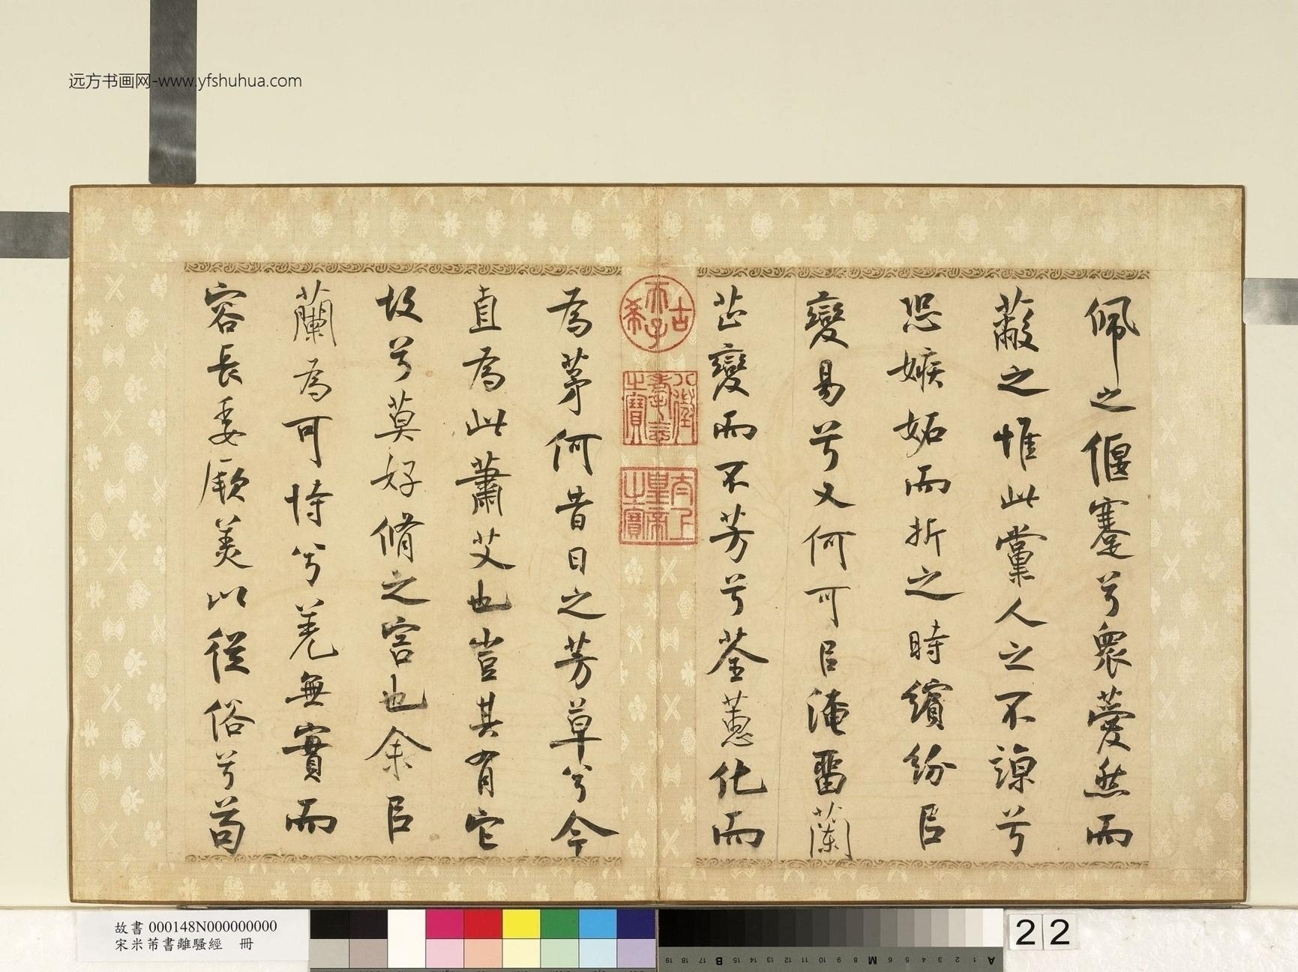 远方书画网-www.yfshuhua.com
佩之偃蹇兮衆薆然而
蔽之惟此黨人之不諒兮
恐嫉妬而折之時繽紛㠯
變易兮又何可㠯淹畱蘭
芷變而不芳兮荃蕙化而
為茅何昔日之芳草兮今
直為此蕭艾也豈其有它
故兮莫好脩之害也余㠯
蘭為可恃兮羌無實而
容長委厥美以從俗兮苟
古希天子
八徵耄念之寶
太上皇帝之寶
故書 000148N000000000
宋米芾書離騷經 冊
22